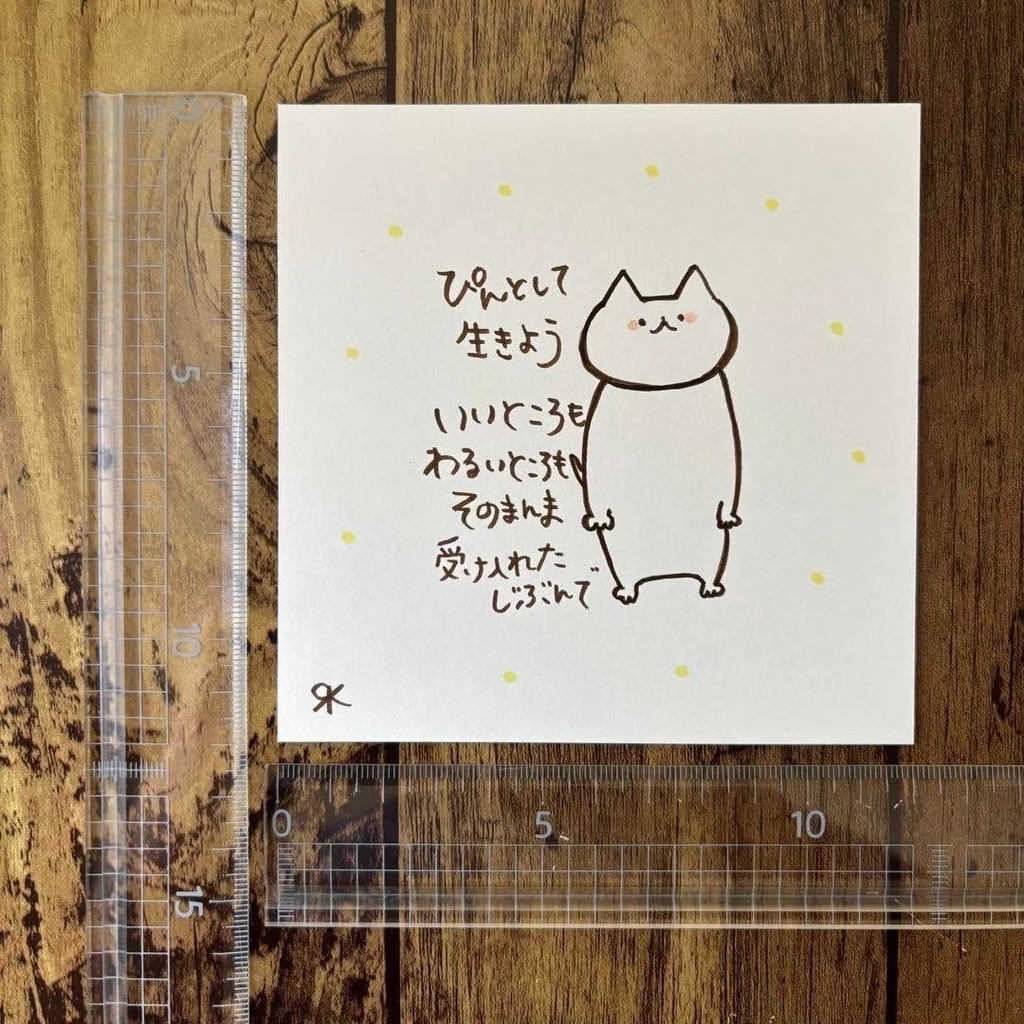 ぴんとして
生きよう
いいところも
わるいところも
そのまんま
受け入れた
じぶんで
0
5
10
15
0 5 10